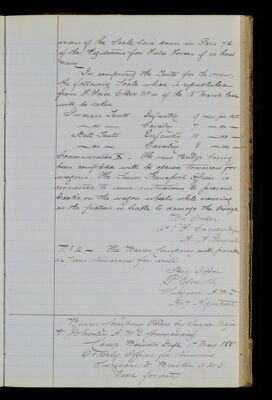 excess of the Scale laid down in Para 42
of the Regulations for Field Forces if so how
many
In computing the Tents for the men,
the following Scale which is republished
from F Force Order No of the 18 March
will be taken
Indian Tents Infantry 9 men per tent
— do — Cavalry — do —
Bell Tents Infantry 10 — do —
— do — Cavalry 8 — do —
Communication X. The new Bridge having
been completed will be opened tomorrow for
wagons. The Senior Transport Officer is
requested to issue instructions to prevent
breaks on the wagon wheels while crossing
as the friction is liable to damage the bridge
By Order
A. A. General
No 2 — The Bearer Company will parade
at 7 am tomorrow for drill
By Order
Surgeon A.M.D
Adjutant
Bearer Company Orders by Surgeon Major
Johnston A.M.D Commanding
Camp May 1881
Orderly Officer for tomorrow
Surgeon W A.M.D
Next for duty